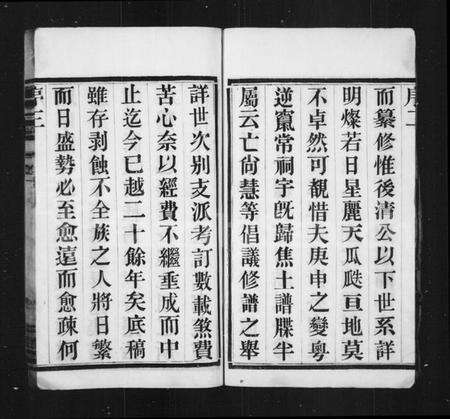 序二
而纂修惟後清公以下世系詳
明燦若日星麗天瓜瓞亘地莫
不卓然可覩惜夫庚申之變粵
逆竄常祠宇旣歸焦土譜牒半
屬云亡尙慧等倡議修譜之舉
詳世次别支派考訂數載煞費
苦心奈以經費不繼垂成而中
止迄今已越二十餘年矣底稿
雖存剥蝕不全族之人將日繁
而日盛勢必至愈遠而愈疎何
序三